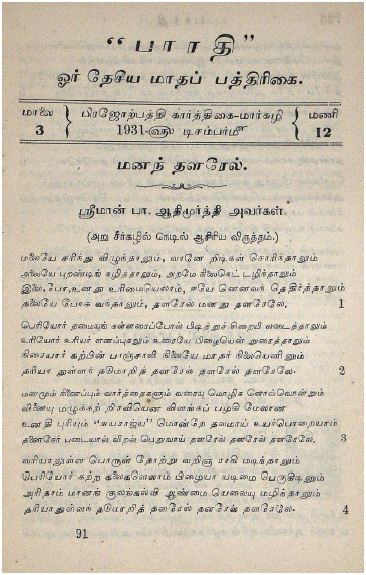 “பாரதி”
ஓர் தேசிய மாதப் பத்திரிகை.
மாலை 3
பிரஜோற்பத்தி கார்த்திகை-மார்கழி
1931-௵ டிசம்பர்௴
மணி 12
மனந் தளரேல்.
ஸ்ரீமான் பா. ஆதிமூர்த்தி அவர்கள்.
(அறு சீர்கழில் நெடில் ஆசிரிய விருத்தம்.)
மலையே சரிந்து விழுந்தாலும், வானே றிடிகள் சொரிந்தாலும்
அலையே புரண்டிங் கழித்தாலும், அறமே நிலைகெட் டழிந்தாலும்
இலை, போ, உனது உரிமையெலாம், ஈயே னெனவந் தெதிர்த்தாலும்
தலையே போக வந்தாலும், தளரேல் மனது தளரேலே. 1
பெரியோர் தமையுங் கள்ளரைப்போல் பிடித்துச் சிறையி லடைத்தாலும்
உரியோர் உரியர் எனப்புகலும் உரையே பிழையென் றுரைத்தாலும்
சிரையார் கற்பின் பாஞ்சாலி நிலையே மாதர் நிலையெனினும்
தரியா துள்ளர் தடுமாறித் தளரேல் தளரேல் தளரேலே. 2
மனமும் நினைப்பும் வார்த்தைகளும் வரையு மொழிக ளொவ்வொன்றும்
வினையு முழுக்கற் பிரவியென விளங்கப் பழகி மேலான
உனதி புரியும் “சுயராஜ்ய” மொன்றே தவமாய் உயர்பொறையாம்
தணனேர் படையால் விறல் பெறுவாய் தளரேல் தளரேல் தளரேலே. 3
வரியாலுள்ள பொருள் தோற்று வறிஞ ராகி மடிந்தாலும்
பெரியோர் கற்ற கலைகளெலாம் பிழையா யடிமை பெருகிடினும்
அரிதாம் மானங் குலங்கல்வி ஆண்மை யெலாமு மழிந்தாலும்
தரியாதுள்ளந் தடுமாறித் தளரேல் தளரேல் தளரேலே. 4
91